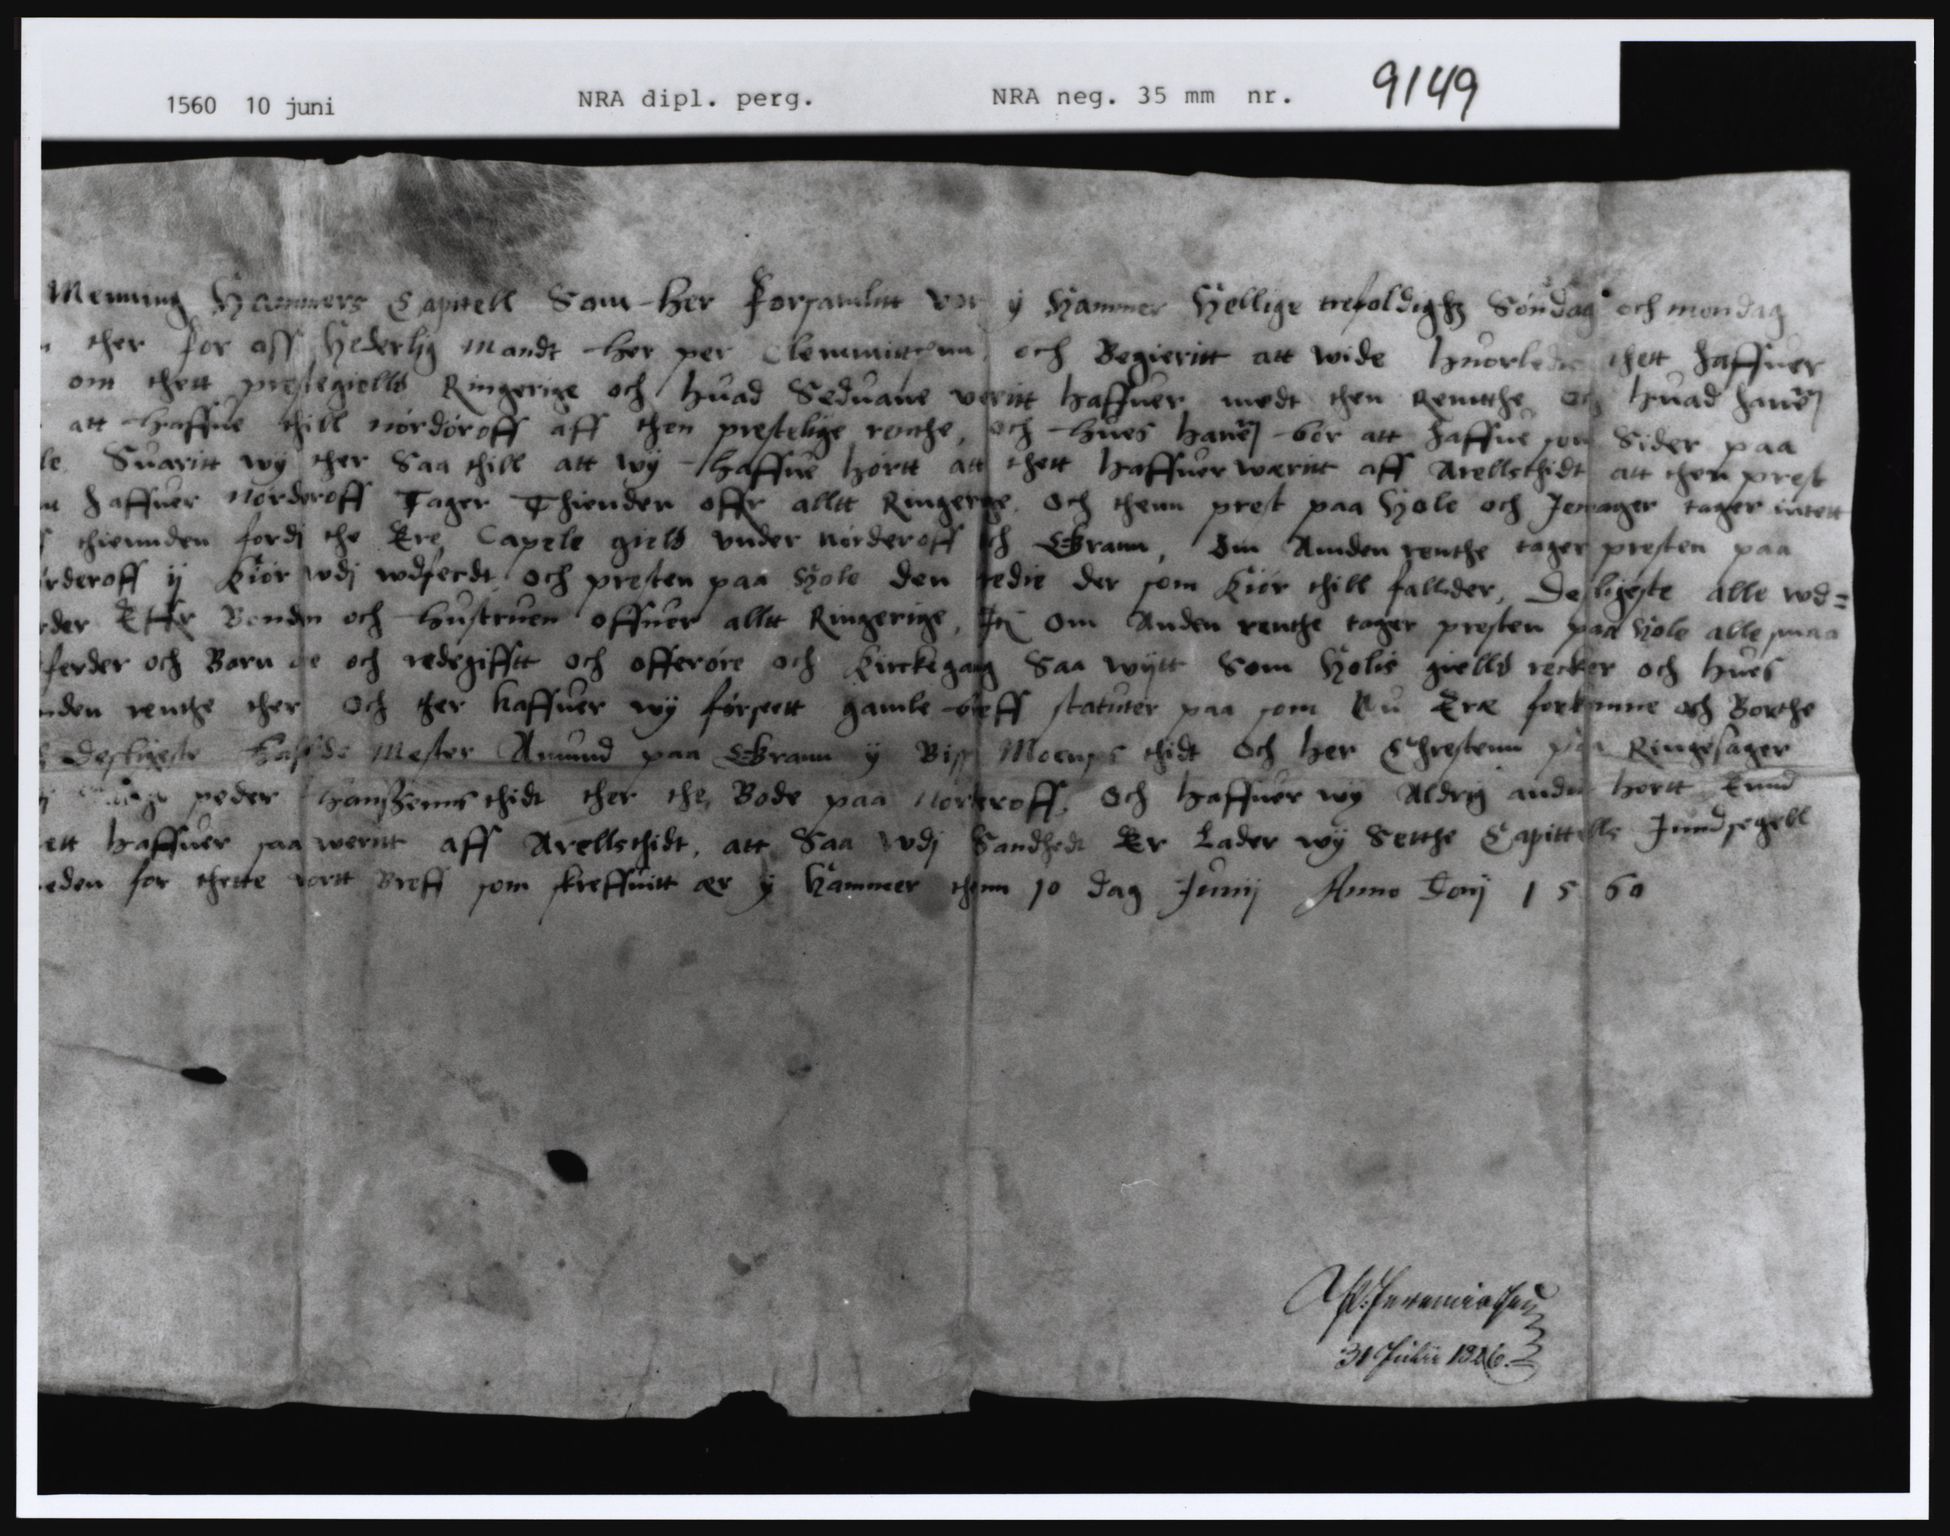 1560 10 juni NRA dipl. perg. NRA neg. 35 mm nr. 9149
Menning Hammers Capitell Som her Forsamlitt var ÿ Hammer Hellige trefoldighz Søndag och mondag
ther for oss Hederlig mandt her per Clemmittssøn och Begieritt att wide huorledis thett haffuer
om thett prestegielld Ringerige och huad Seduane veritt haffuer medt then Rentthe och huad hand
att haffue thill nórdóroff aff then prestelige renthe, och hues hand bór att haffue som Sider paa
le Suaritt wÿ ther Saa thill att wÿ haffue hórtt att thett haffuer wæritt aff Arellsthidt att then prest
haffuer Nórderoff Tager Thienden offr alltt Ringerige och thenn prest paa Hole och Jeuager tager intett
thiennden fordj the Ere Capele gield vnder nórderoff och Grann, Om Annden renthe tager presten paa
rderoff ij kiór wdj wdferdt och presten paa Hole den tredie der som kiór thill fallder, Desligeste alle wd=
rder Effr Bonden och hustruen offuer alltt Ringerige, Itj Om Anden renthe tager presten paa Hole alle smaa
ferder och Barn och redegifftt och offeróre och kirckegang Saa wÿtt Som Holis gielld recker och hues
nden renthe ther och ther haffuer wÿ fórseett gamle breff statuter paa som Nu Eræ forkomne och Borthe
desligeste haffde Mester Amund paa Grann ÿ Bisp Moenss thidt och her Chrestenn paa Ringesager
peder hanssenns thidt ther the Bode paa Nórderoff. Och haffuer wÿ Aldrig anden hórtt End
ett haffuer saa weritt aff Arellsthidt, att Saa wdj Sandhedt Er Lader wÿ Setthe Capittells Jnndsegell
neden for thette vortt Breff som skreffuitt ær ÿ Hammer thenn 10 dag Junij Anno Donj 1560
31 Julii 1826.